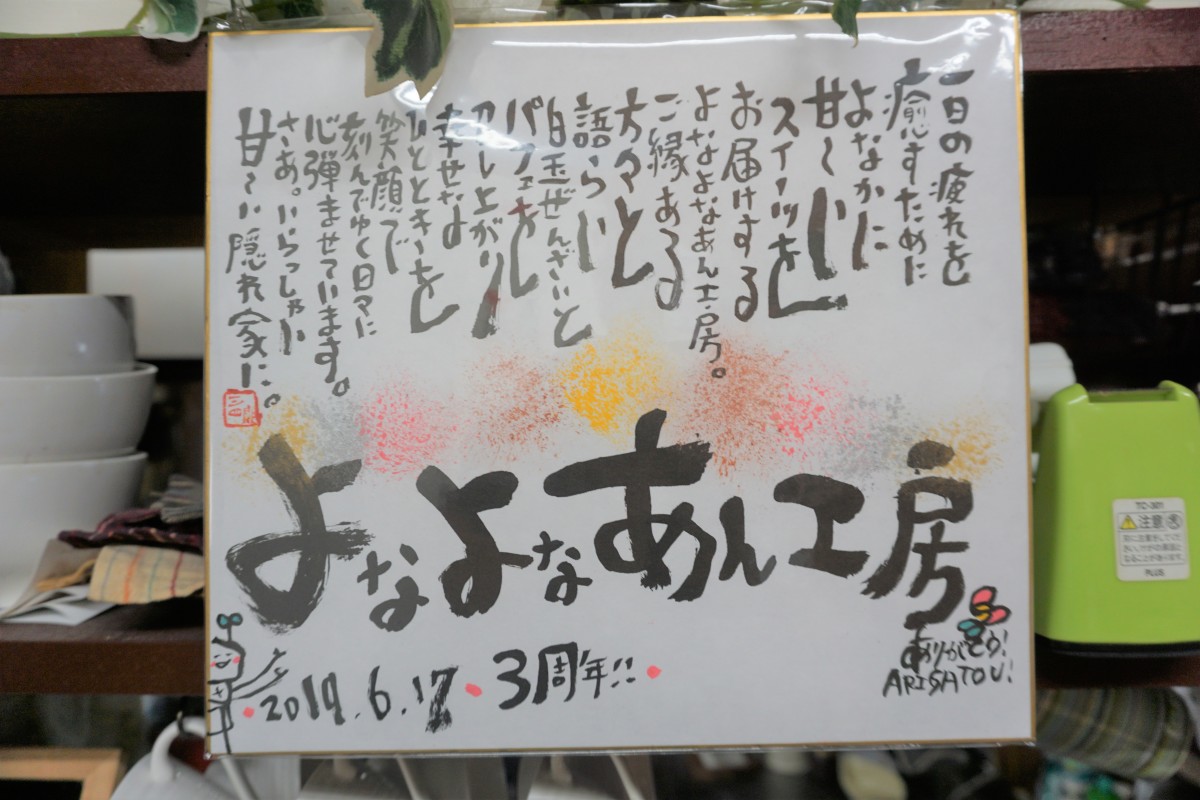 一日の疲れを
癒すために
よなかに
甘〜い
スイーツを
お届けする
よなよなあん工房。
ご縁ある
方々と
語らい
白玉ぜんざいと
パフェを
召し上がり
幸せな
ひとときを
笑顔で
刻んでゆく日々に
心弾ませています。
さあ。いらっしゃい
甘〜い隠れ家に。
よなよなあん工房
2019.6.17・3周年!!・
ありがとう!
ARIGATOU!
TC-301
注意
PLUS